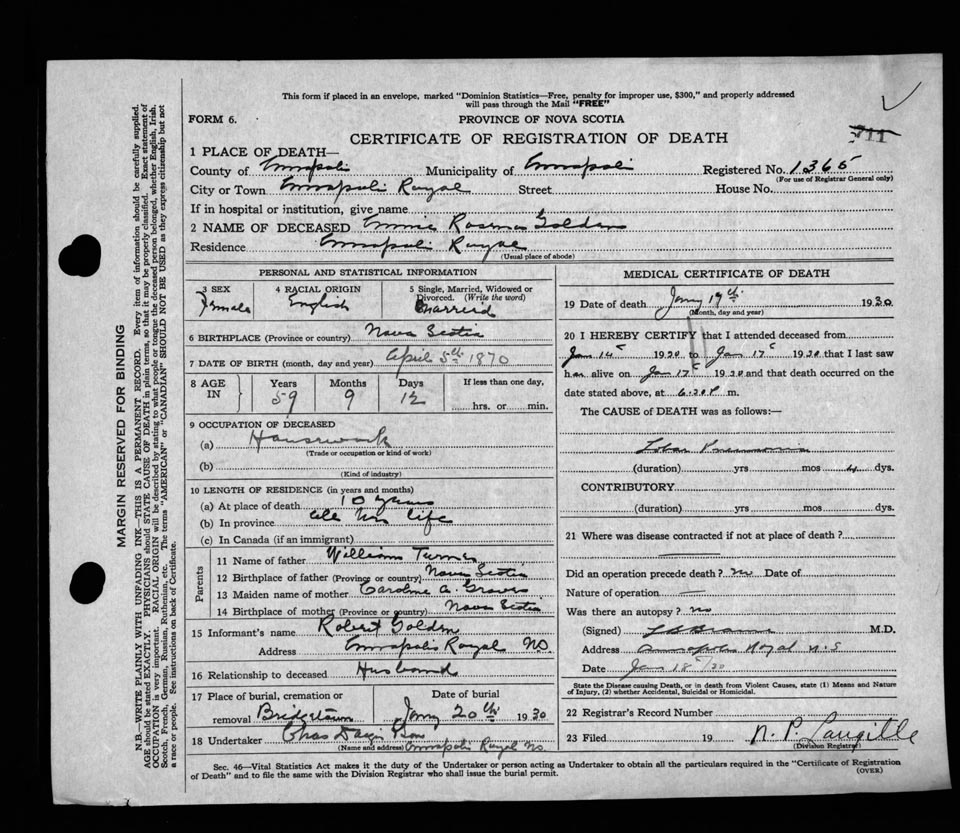 This form if placed in an envelope, marked "Dominion Statistics—Free, penalty for improper use, $300," and properly addressed
will pass through the Mail "FREE"
FORM 6. PROVINCE OF NOVA SCOTIA
CERTIFICATE OF REGISTRATION OF DEATH
1 PLACE OF DEATH—
County of Annapolis Municipality of Annapolis Registered No. 1365
(For use of Registrar General only)
City or Town Annapolis Royal Street House No.
If in hospital or institution, give name
2 NAME OF DECEASED Golden
Residence Annapolis Royal
(Usual place of abode)
PERSONAL AND STATISTICAL INFORMATION
3 SEX Female
4 RACIAL ORIGIN English
5 Single, Married, Widowed or Divorced. (Write the word) Married
6 BIRTHPLACE (Province or country) Nova Scotia
7 DATE OF BIRTH (month, day and year) April 5th 1870
8 AGE IN Years Months Days If less than one day,
59 9 12 hrs. or min.
9 OCCUPATION OF DECEASED
(a) Housework
(Trade or occupation or kind of work)
(b)
(Kind of industry)
10 LENGTH OF RESIDENCE (in years and months)
(a) At place of death 10 years
(b) In province all her life
(c) In Canada (if an immigrant)
Parents
11 Name of father William Turner
12 Birthplace of father (Province or country) Nova Scotia
13 Maiden name of mother Caroline A. Graves
14 Birthplace of mother (Province or country) Nova Scotia
15 Informant's name Robert Golden
Address Annapolis Royal NS.
16 Relationship to deceased Husband
17 Place of burial, cremation or removal Bridgetown
Date of burial Jany 20th 1930
18 Undertaker Chas
(Name and address) Annapolis Royal NS.
MEDICAL CERTIFICATE OF DEATH
19 Date of death Jany 17th 1930
(Month, day and year)
20 I HEREBY CERTIFY that I attended deceased from
Jan 14 1930 to Jan 17 1930 that I last saw
her alive on Jan 17 1930 and that death occurred on the
date stated above, at 6.30 P m.
The CAUSE of DEATH was as follows:—
Lobar Pneumonia
(duration) yrs mos 4 dys.
CONTRIBUTORY
(duration) yrs mos dys.
21 Where was disease contracted if not at place of death?
Did an operation precede death? no Date of
Nature of operation —
Was there an autopsy? no
(Signed) M.D.
Address Annapolis Royal N.S
Date Jan 18/30
State the Disease causing Death, or in death from Violent Causes, state (1) Means and Nature
of Injury, (2) whether Accidental, Suicidal or Homicidal.
22 Registrar's Record Number
23 Filed 19 N. P. Langille
(Division Registrar)
Sec. 46—Vital Statistics Act makes it the duty of the Undertaker or person acting as Undertaker to obtain all the particulars required in the "Certificate of Registration
of Death" and to file the same with the Division Registrar who shall issue the burial permit. (OVER)
MARGIN RESERVED FOR BINDING
N.B.—WRITE PLAINLY WITH UNFADING INK—THIS IS A PERMANENT RECORD. Every item of information should be carefully supplied.
AGE should be stated EXACTLY. PHYSICIANS should STATE CAUSE OF DEATH in plain terms, so that it may be properly classified. Exact statement of
OCCUPATION is very important. RACIAL ORIGIN will be described by stating to what people or tongue the deceased person belonged, whether English, Irish,
Scotch, French, German, Russian, Ruthenian, etc. The terms "AMERICAN" or "CANADIAN" SHOULD NOT BE USED as they express citizenship but not
a race or people. See instructions on back of Certificate.